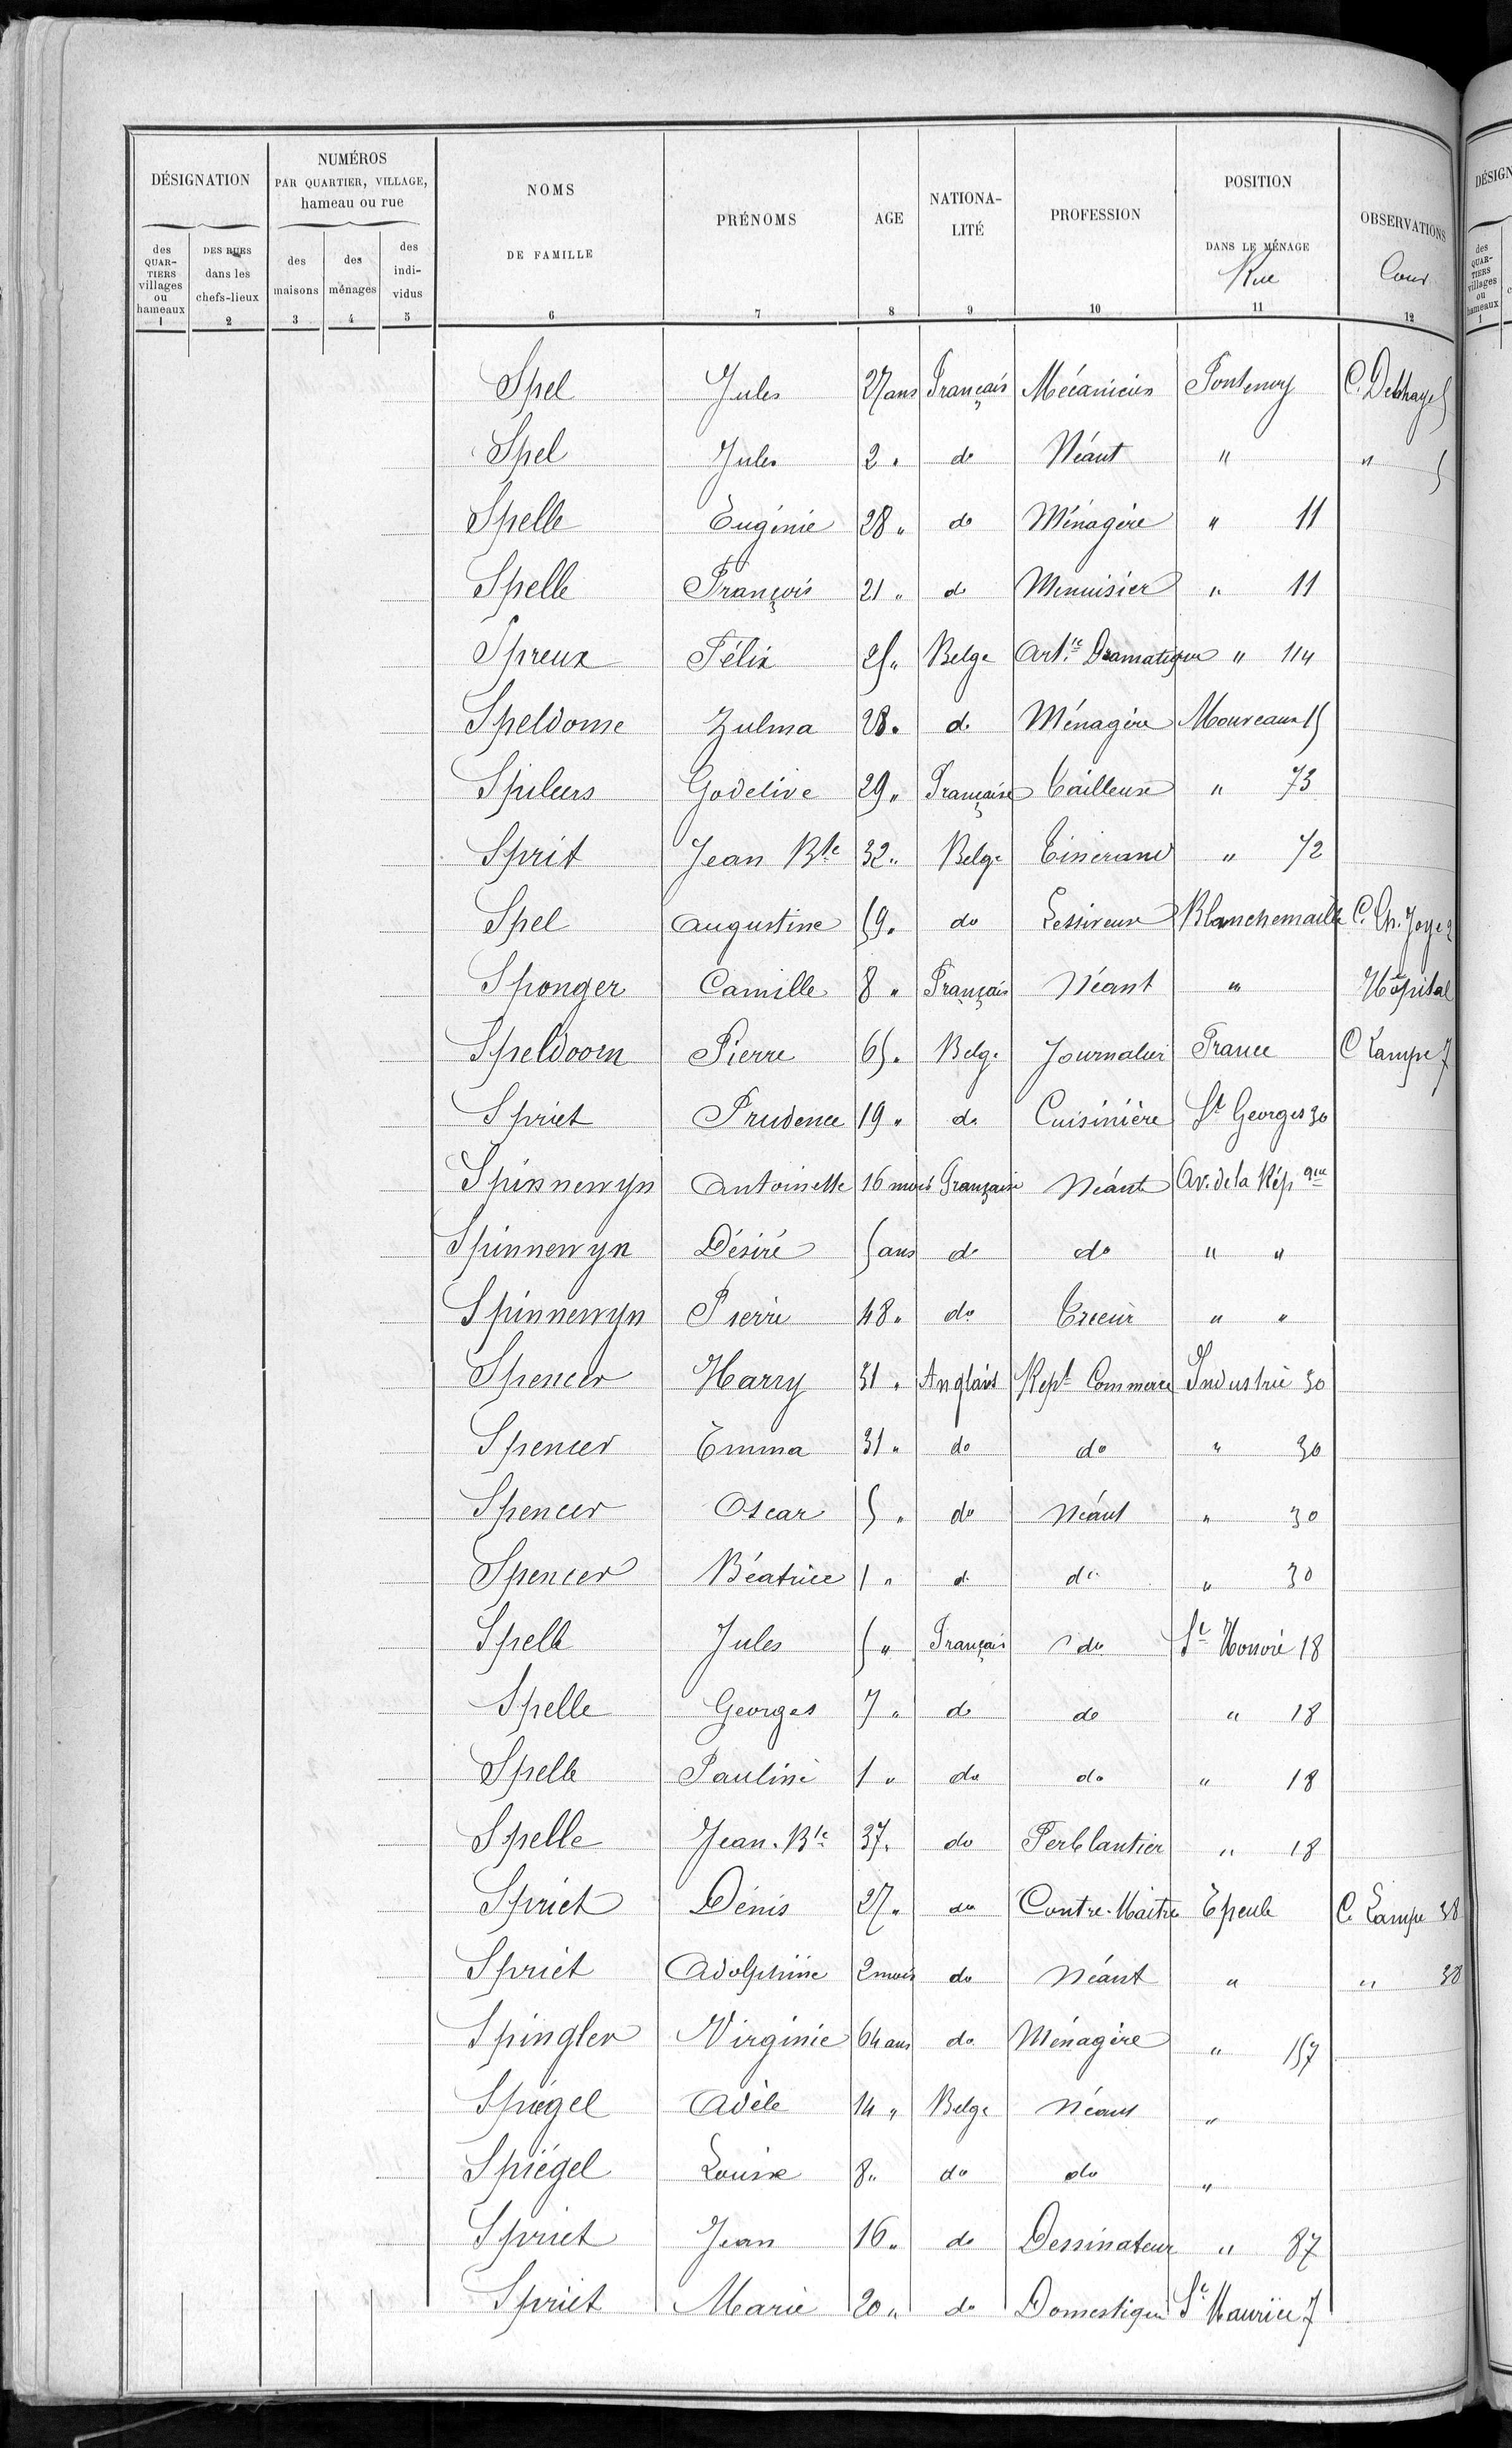 DÉSIGNATION
NUMÉROS
PAR QUARTIER, VILLAGE,
hameau ou rue
NOMS
DE FAMILLE
PRÉNOMS
AGE
NATIONA-
LITÉ
PROFESSION
POSITION
DANS LE MÉNAGE
Rue
OBSERVATIONS
Cour
des QUAR-TIERS villages ou hameaux
DES RUES dans les chefs-lieux
des maisons
des ménages
des indi-vidus
1 2 3 4 5 6 7 8 9 10 11 12
Spel Jules 27 ans Français Mécanicien Fontenoy C. Delahaye 5
Spel Jules 2 " do Néant " " 5
Spelle Eugénie 28 " do Ménagère " 11
Spelle François 21 " do Menuisier " 11
Spreux Félix 25 " Belge Art.te Dramatique " 114
Speldome Zulma 28 " do Ménagère Mouveaux 15
Spileers Godelive 29 " Française Tailleuse " 73
Sprit Jean Bte 32 " Belge Tisserand " 72
Spel Augustine 59 " do Lessiveuse Blanchemaille C. Ch. Joye 2
Sponger Camille 8 " Français Néant " Hôpital
Speldoorn Pierre 65 " Belge Journalier France C Lampe 7
Spriet Prudence 19 " do Cuisinière St Georges 30
Spinnewyn Antoinette 16 mois Française Néant Av. de la Rép que
Spinnewyn Désiré 5 ans do do " "
Spinnewyn Pierre 48 " do Trieur " "
Spencer Harry 31 " Anglais Rept Commerce Industrie 30
Spencer Emma 31 " do do " 30
Spencer Oscar 5 " do Néant " 30
Spencer Béatrice 1 " do do " 30
Spelle Jules 5 " Français do St Honoré 18
Spelle Georges 7 " do do " 18
Spelle Pauline 1 " do do " 18
Spelle Jean-Bte 37 " do Ferblantier " 18
Spriet Dénis 27 " do Contre-Maître Epeule C. Lampe 38
Spriet Adolphine 2 mois do Néant " " 38
Spingler Virginie 64 ans do Ménagère " 157
Spiégel Adèle 14 " Belge Néant "
Spiégel Louise 8 " do do "
Spriet Jean 16 " do Dessinateur " 87
Spriet Marie 20 " do Domestique St Maurice 7